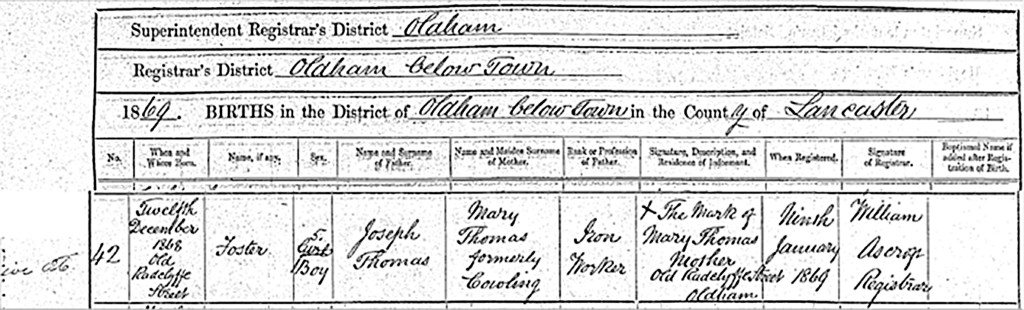 Superintendent Registrar's District Oldham
Registrar's District Oldham below Town
1869. BIRTHS in the District of Oldham below Town in the County of Lancaster
No.
When and
Where Born.
Name, if any.
Sex.
Name and Surname
of Father.
Name and Maiden Surname
of Mother.
Rank or Profession
of Father.
Signature, Description, and
Residence of Informant.
When Registered.
Signature
of Registrar.
Baptismal Name if
added after Regis-
tration of Birth.
42
Twelfth
December
1868
Old
Radcliffe
Street
Foster
Boy
Joseph
Thomas
Mary
Thomas
formerly
Cowling
Iron
Worker
X The Mark of
Mary Thomas
Mother
Old Radcliffe Street
Oldham
Ninth
January
1869
William
Ascroft
Registrar